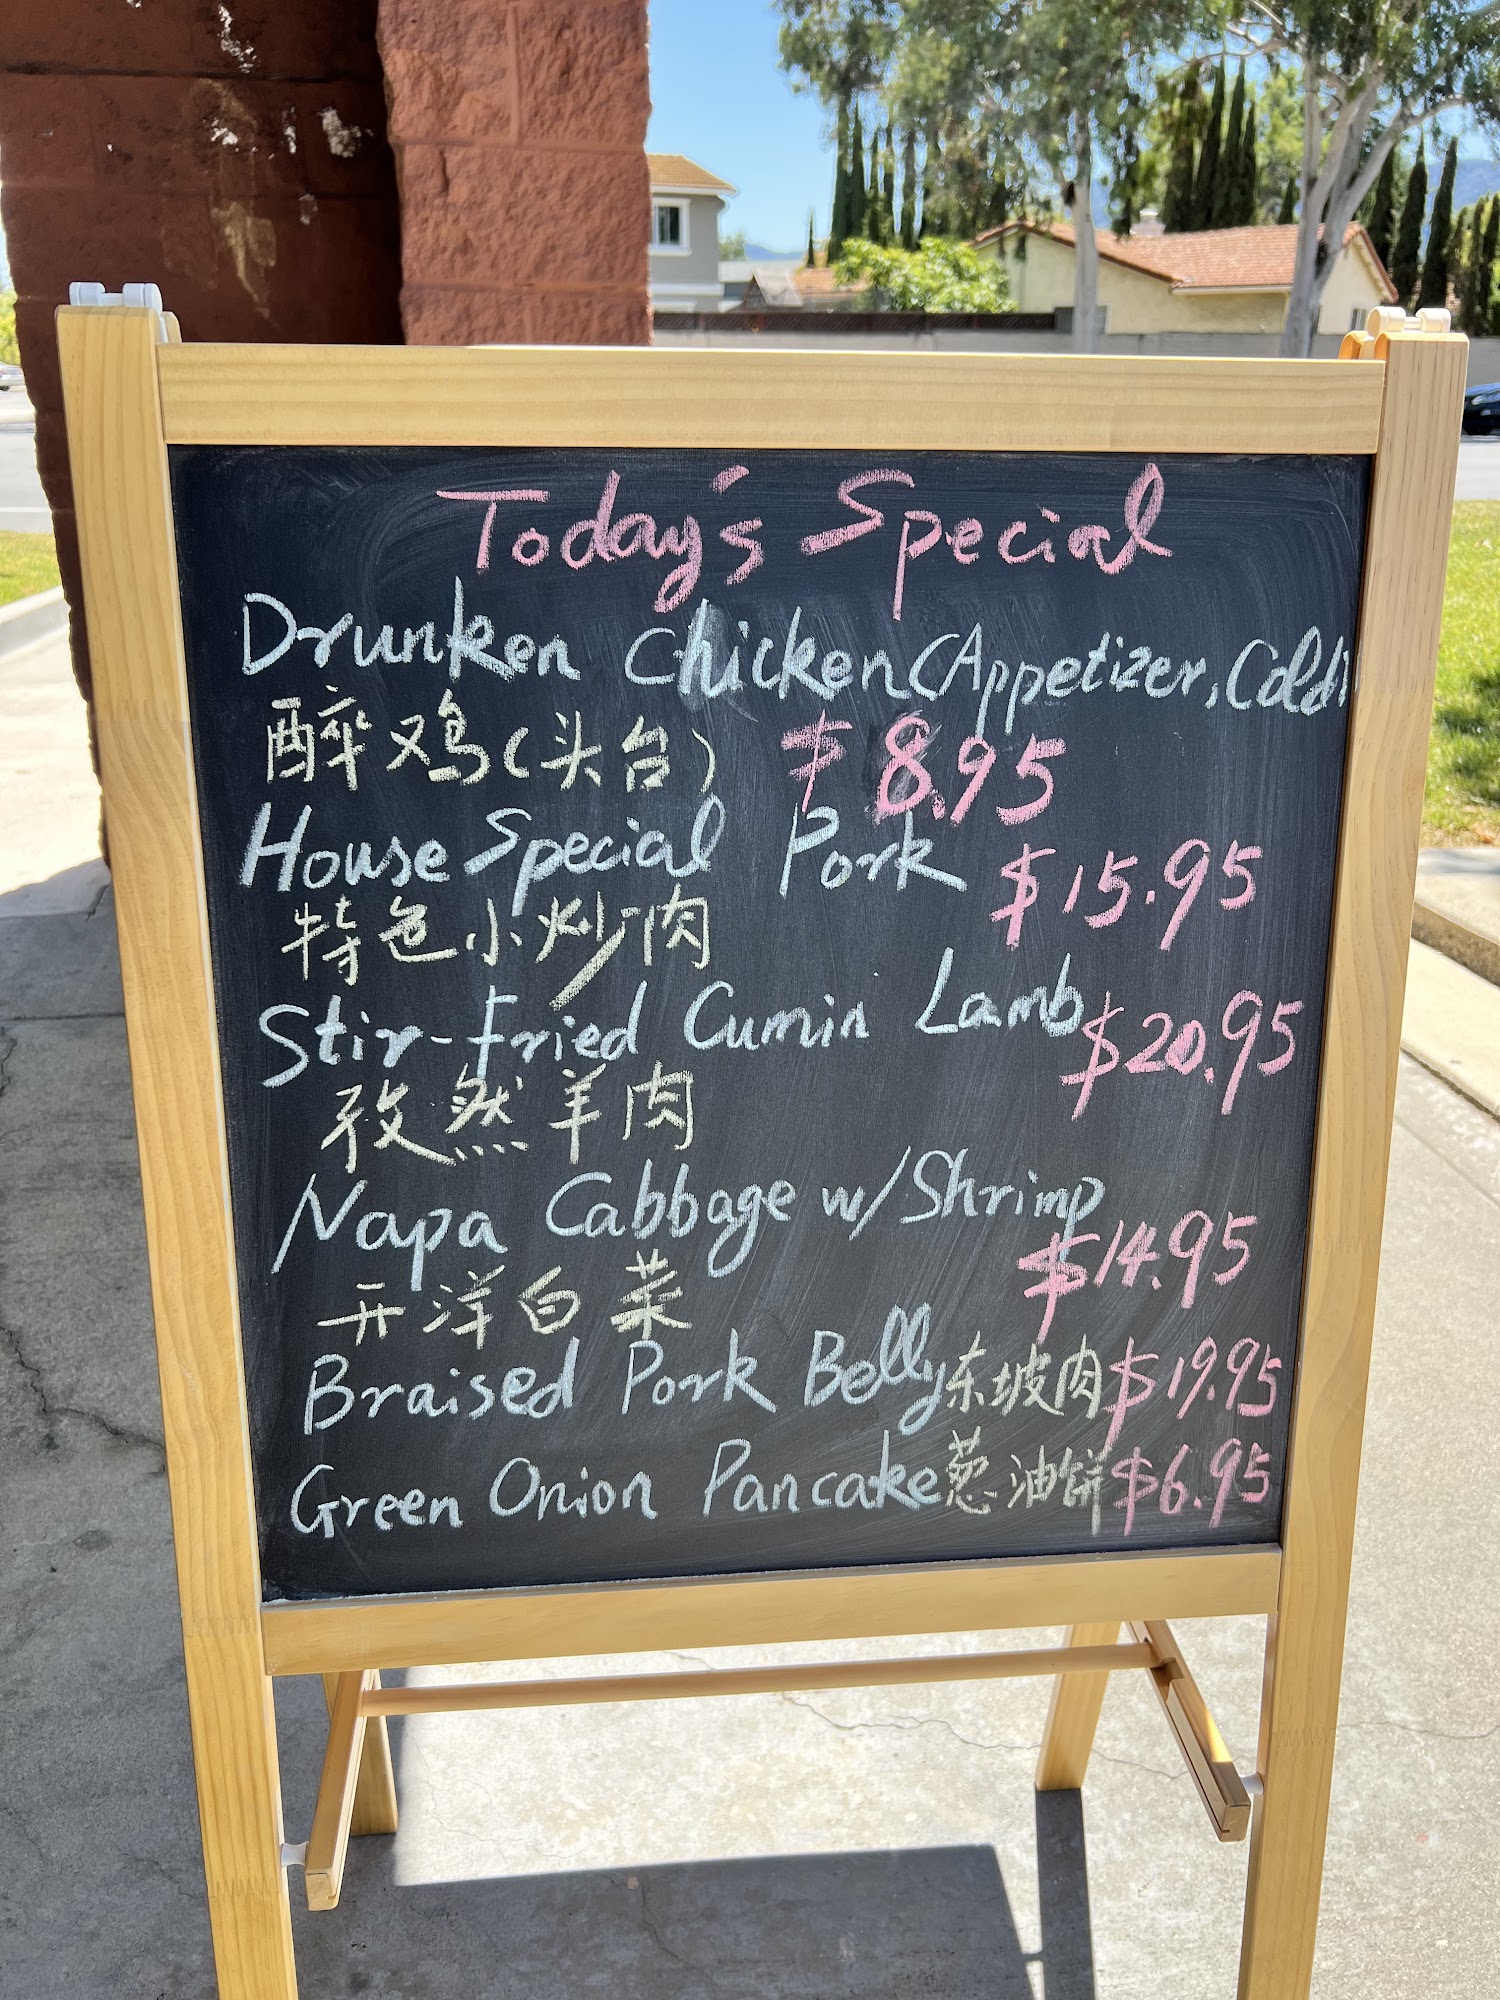 Today's Special
Drunken Chicken (Appetizer, Cold)
醉鸡(头台) $8.95
House Special Pork $15.95
特色小炒肉
Stir-Fried Cumin Lamb $20.95
孜然羊肉
Napa Cabbage w/ Shrimp $14.95
开洋白菜
Braised Pork Belly 东坡肉 $19.95
Green Onion Pancake 葱油饼 $6.95